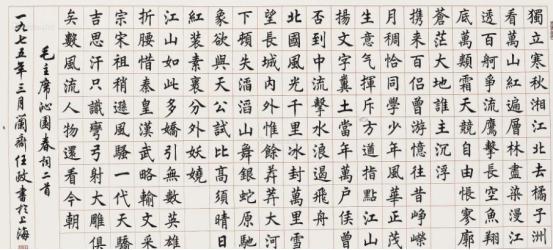 獨立寒秋湘江北去橘子洲
看萬山紅遍層林盡染漫江
透百舸爭流鷹擊長空魚翔
底萬類霜天競自由悵寥廓
蒼茫大地誰主沉浮
携來百侶曾遊憶往昔崢嶸
月稠恰同學少年風華正茂
生意氣揮斥方遒指點江山
揚文字糞土當年萬戶侯曾
否到中流擊水浪遏飛舟
北國風光千里冰封萬里雪
望長城內外惟餘莽莽大河
下頓失滔滔山舞銀蛇原馳
象欲與天公試比高須晴日
紅裝素裹分外妖嬈
江山如此多嬌引無數英雄
折腰惜秦皇漢武略輸文采
宗宋祖稍遜風騷一代天驕
吉思汗只識彎弓射大雕俱
矣數風流人物還看今朝
毛主席沁園春詞二首
一九七五年三月蘭齋任政書於上海